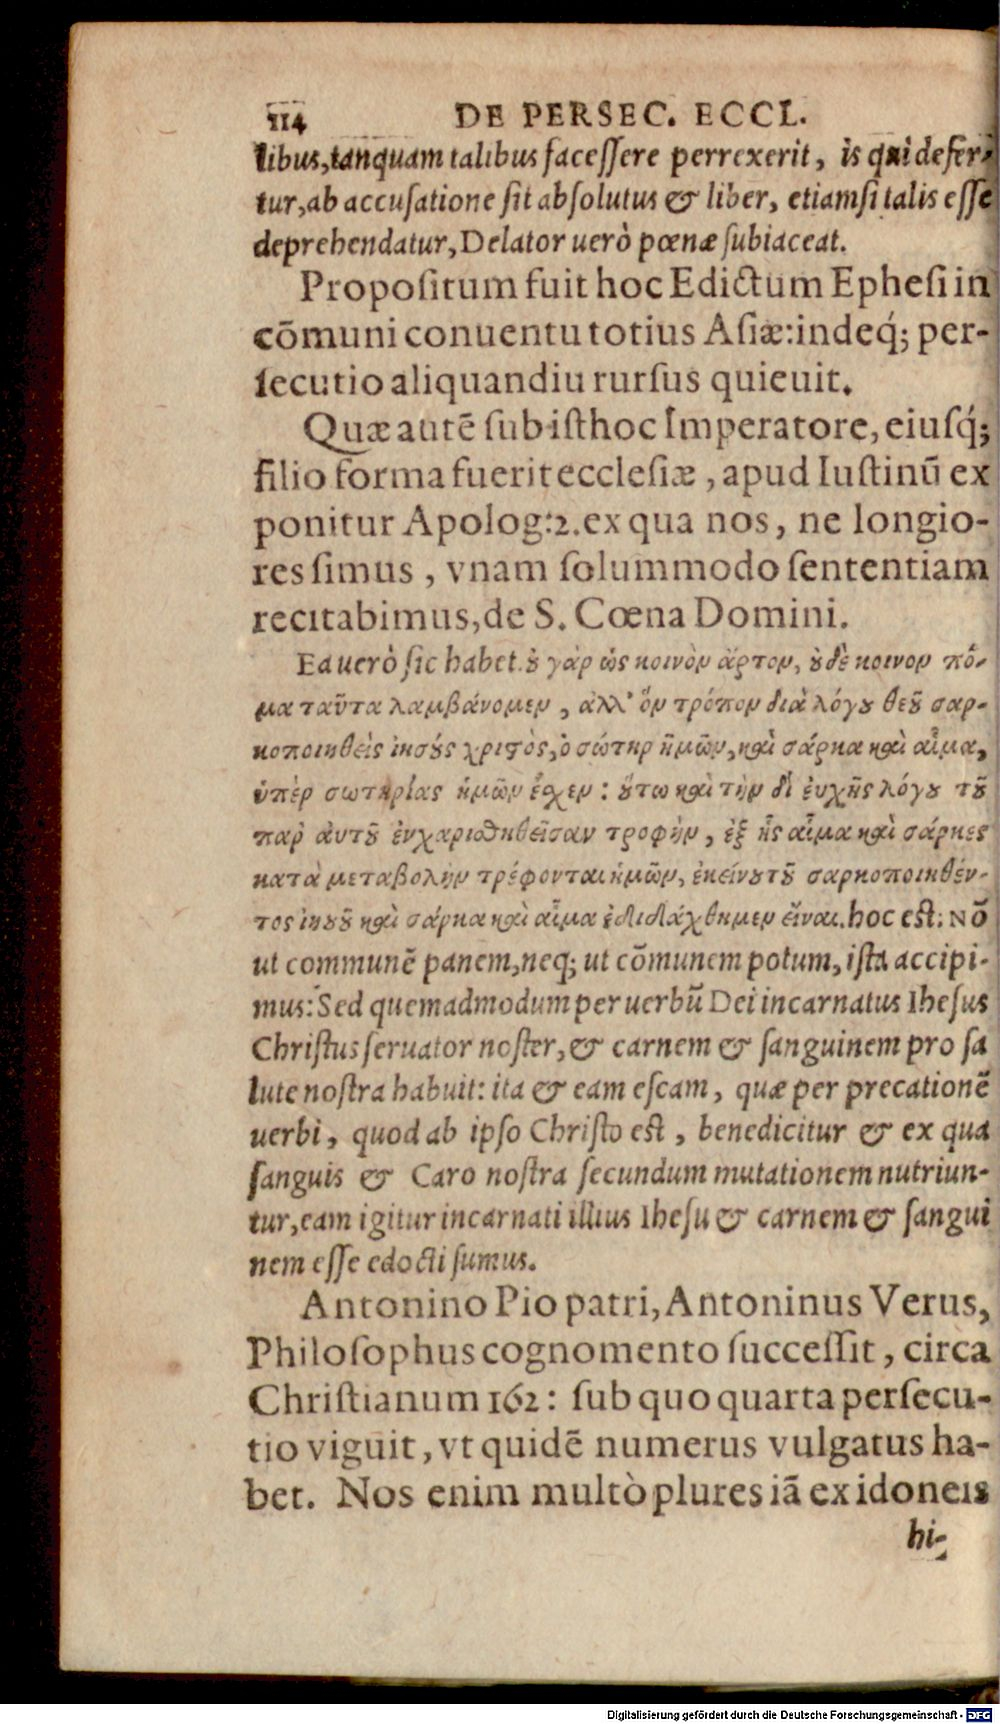 114 DE PERSEC. ECCL.
libus, tanquam talibus facessere perrexerit, is qui defer-
tur, ab accusatione sit absolutus & liber, etiamsi talis esse
deprehendatur, Delator uerò pœnæ subiaceat.
Propositum fuit hoc Edictum Ephesi in
cōmuni conuentu totius Asiæ: indeq́; per-
secutio aliquandiu rursus quieuit.
Quæ autē sub isthoc Imperatore, eiusq́;
filio forma fuerit ecclesiæ, apud Iustinū ex
ponitur Apolog: 2. ex qua nos, ne longio-
res simus, vnam solummodo sententiam
recitabimus, de S. Cœna Domini.
Ea uerò sic habet. ȣ γὰρ ὡς κοινὸν ἄρτον, ȣδὲ κοινον πό-
μα ταῦτα λαμβάνομεν, ἀλλ' ὃν τρόπον διὰ λόγȣ θεȣ͂ σαρ-
κοποιηθεὶς ἰησȣ́ς χριϛὸς, ὁ σώτηρ ἡμῶν, καὶ σάρκα καὶ αἷμα,
ὑπὲρ σωτηρίας ἡμῶν ἔσχεν: ȣ́τω καὶ τὴν δἰ ἐυχῆς λόγȣ τȣ͂
παρ ἀυτȣ͂ ἐνχαρισθηθεῖσαν τροφὴν, ἐξ ἧς αἷμα καὶ σάρκες
κατὰ μεταβολὴν τρέφονται ἡμῶν, ἐκείνȣ τȣ͂ σαρκοποιηθέν-
τος ἰησȣ͂ καὶ σάρκα καὶ αἷμα ἐδιδάχθημεν εἶναι. hoc est: Nō
ut communē panem, neq; ut cōmunem potum, ista accipi-
mus: Sed quemadmodum per uerbū Dei incarnatus Ihesus
Christus seruator noster, & carnem & sanguinem pro sa
lute nostra habuit: ita & eam escam, quæ per precationē
uerbi, quod ab ipso Christo est, benedicitur & ex qua
sanguis & Caro nostra secundum mutationem nutriun-
tur, eam igitur incarnati illius Ihesu & carnem & sangui
nem esse edocti sumus.
Antonino Pio patri, Antoninus Verus,
Philosophus cognomento successit, circa
Christianum 162: sub quo quarta persecu-
tio viguit, vt quidē numerus vulgatus ha-
bet. Nos enim multò plures iā ex idoneis
hi-
Digitalisierung gefördert durch die Deutsche Forschungsgemeinschaft - DFG